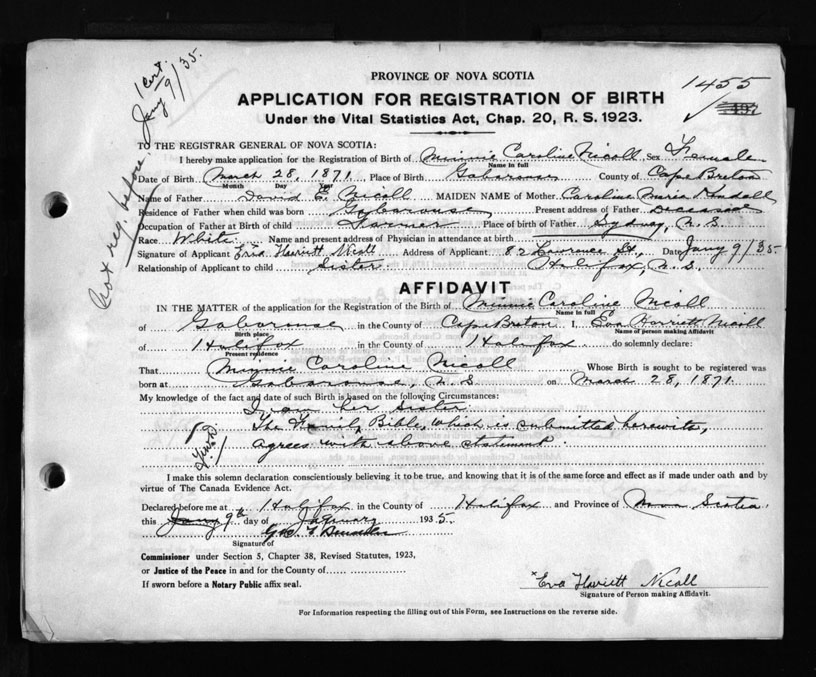 1 Cert. Jany 9/35.
Not reg. before.
PROVINCE OF NOVA SCOTIA
1455
APPLICATION FOR REGISTRATION OF BIRTH
Under the Vital Statistics Act, Chap. 20, R. S. 1923.
TO THE REGISTRAR GENERAL OF NOVA SCOTIA:
I hereby make application for the Registration of Birth of Minnie Caroline Nicoll Sex Female
Name in full
Date of Birth March 28, 1871 Place of Birth Gabarouse County of Cape Breton
Month Day Year
Name of Father David E. Nicoll MAIDEN NAME of Mother Caroline Maria Kendall
Residence of Father when child was born Gabarouse Present address of Father Deceased
Occupation of Father at Birth of child Farmer Place of birth of Father Sydney, N. S.
Race White Name and present address of Physician in attendance at birth
Signature of Applicant Eva Harriett Nicoll Address of Applicant 82 Lawrence St., Date Jany 9/35
Relationship of Applicant to child Sister. Halifax, N. S.
AFFIDAVIT
IN THE MATTER of the application for the Registration of the Birth of Minnie Caroline Nicoll
Name in full
of Gabarouse in the County of Cape Breton I, Eva Harriett Nicoll
Birth place Name of person making Affidavit
of Halifax in the County of Halifax do solemnly declare:
Present residence
That Minnie Caroline Nicoll Whose Birth is sought to be registered was
born at Gabarouse, N. S. on March 28, 1871
My knowledge of the fact and date of such Birth is based on the following Circumstances:
I am her sister
The Family Bible, which is submitted herewith,
agrees with above statement.
I make this solemn declaration conscientiously believing it to be true, and knowing that it is of the same force and effect as if made under oath and by
virtue of The Canada Evidence Act.
Declared before me at Halifax in the County of Halifax and Province of Nova Scotia
this Jany 9th day of January 1935
Signature of
Commissioner under Section 5, Chapter 38, Revised Statutes, 1923,
or Justice of the Peace in and for the County of
If sworn before a Notary Public affix seal.
x Eva Harriett Nicoll
Signature of Person making Affidavit.
For Information respecting the filling out of this Form, see Instructions on the reverse side.